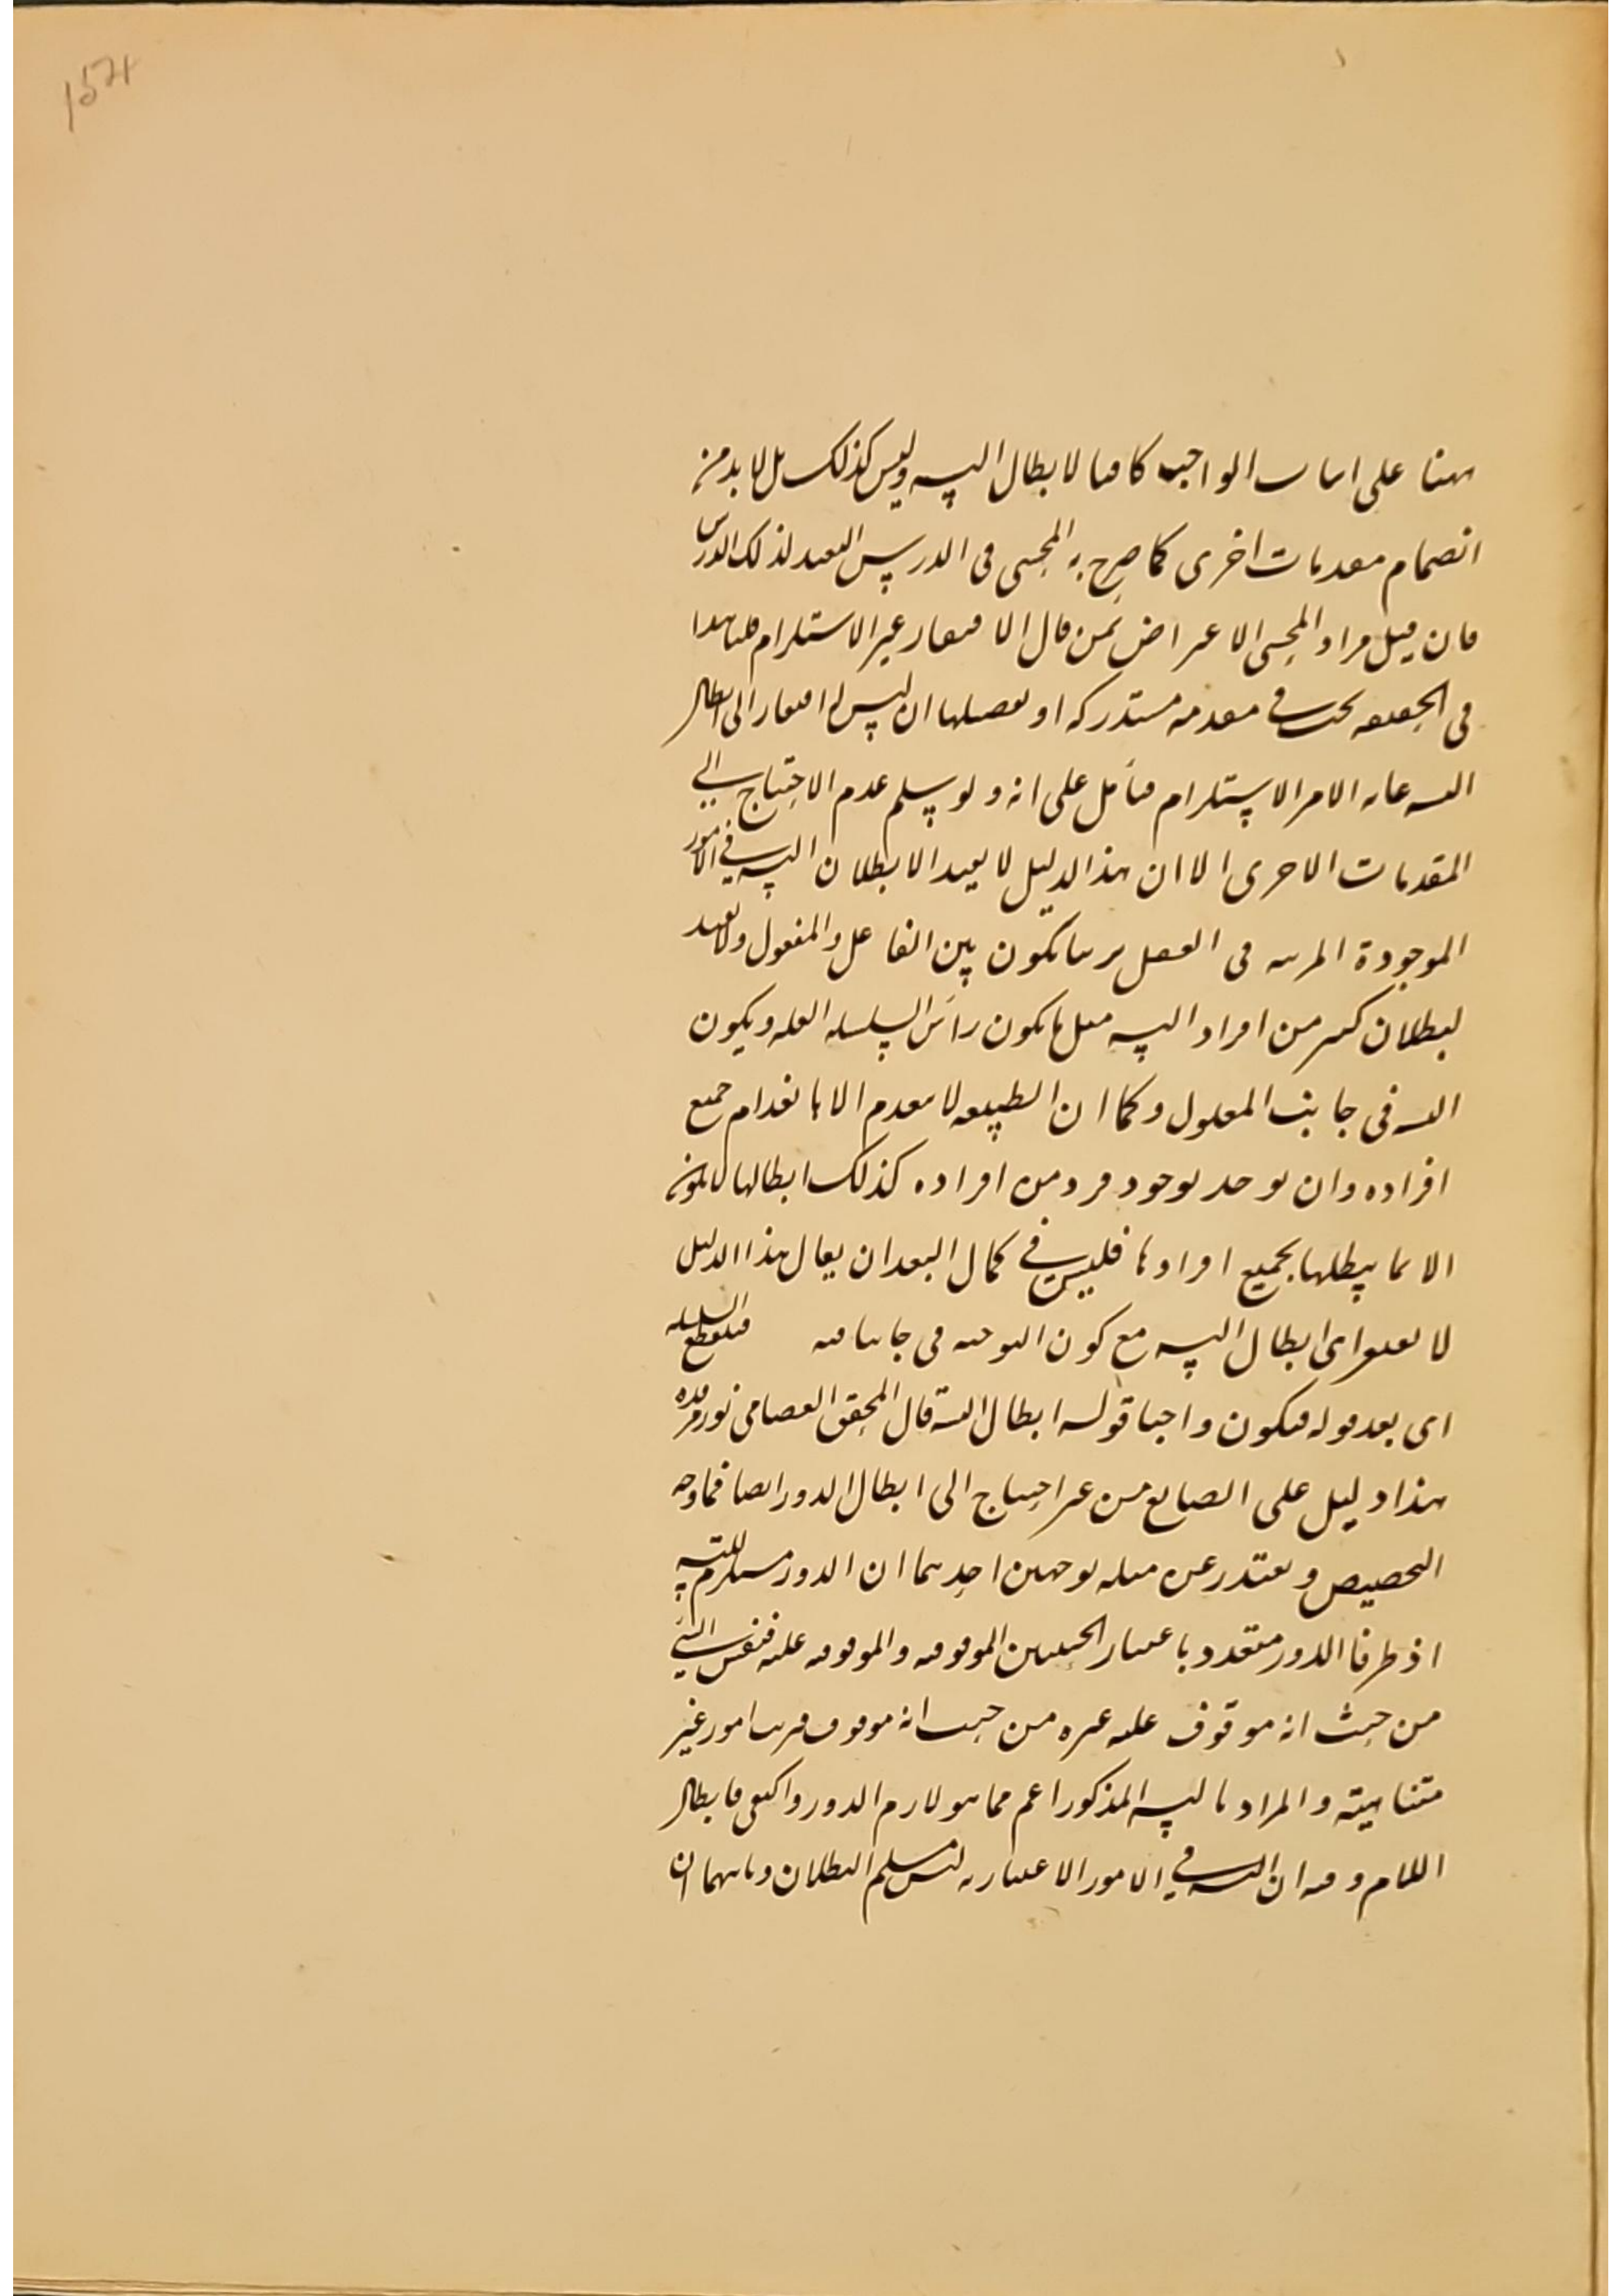 ١
1571
ههنا على اثبات الواجب كافيا لابطال التسه وليس كذلك بل لا بد من
انضمام مقدمات اخرى كما صرح به المحشى فى الدرس البعيد لذلك الدرس
فان قيل مراد المحشى الاعتراض بمن قال الافتقار غير الاستلزام قلنا هذا
فى الحقيقه بحث فى مقدمه مستدركه او تفصيلها ان ليس له افتقار الى ابطال
التسه غايه الامر الاستلزام فتأمل على انه ولو يسلم عدم الاحتياج الى
المقدمات الاخرى الا ان هذا الدليل لا يفيد الا بطلان التسه فى الامور
الموجودة المرتبه فى العقل ترتبا يكون بين الفاعل والمفعول ولا يفيد
لبطلان كثير من افراد التسه مثل ما يكون رأس السلسله العله ويكون
التسه فى جانب المعلول وكما ان الطبيعه لا تنعدم الا بانعدام جميع
افراده وان يوجد بوجود فرد من افراده كذلك ابطالها لا يكون
الا بما يبطلها بجميع افرادها فليس فى كمال البعد ان يقال هذا الدليل
لا يفتقر الى ابطال التسه مع كون التوجيه فى جانبا فيه فينقطع السلسله
اى بعد قوله فيكون واجبا قوله ابطال التسه قال المحقق العصامى نور مرقده
هذا دليل على الصانع من غير احتياج الى ابطال الدور ايضا فما وجه
التخصيص ويعتذر عن مثله بوجهين احدهما ان الدور مستلزم للتسه
اذ طرفا الدور متعدد باعتبار الحيثيتين الموقوفيه والموقوفيه عليه فنفس الشئ
من حيث انه موقوف عليه غيره من حيث انه موقوف فترتب امور غير
متناهيته والمراد بالتسه المذكور اعم مما هو لازم الدور واكتفى بابطال
اللازم وفيه ان التسه فى الامور الاعتباريه ليس مسلم البطلان وثانيهما ان